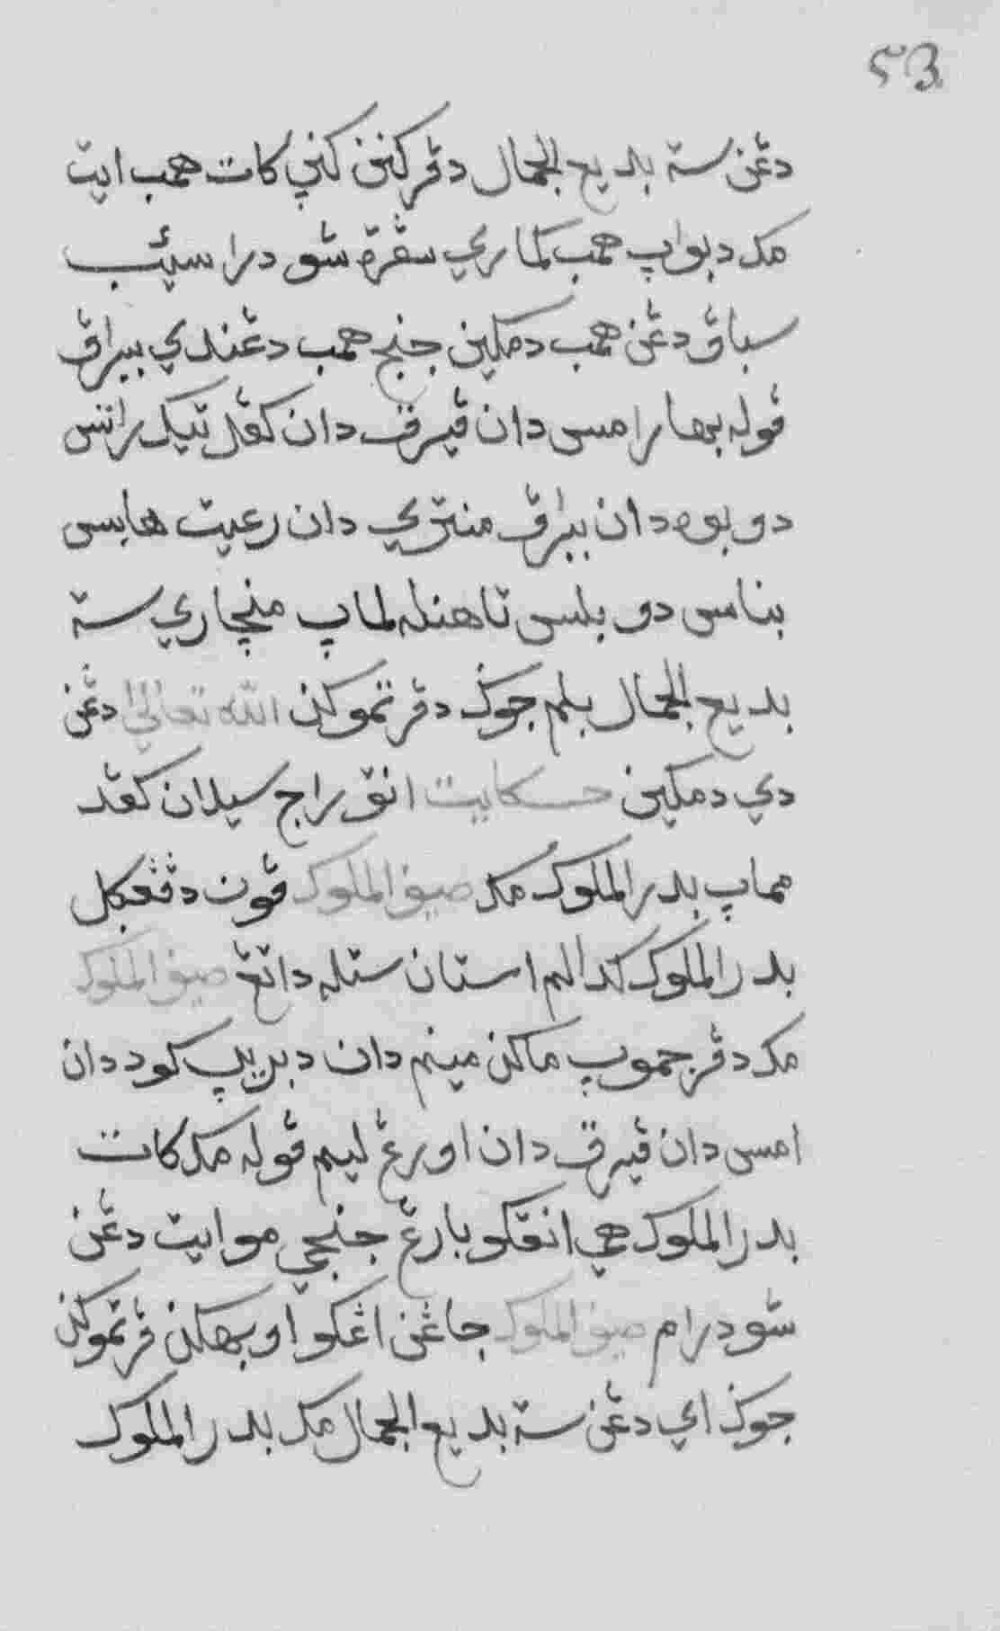 53.
دڠن ستي بديع الجمال دڤركننڽ كنڽ كات همب ايت
مك دبواڽ همب كماري سڤرة شودرا سيئب
سباڤ دڠن همب دمكين جنج همب دڠندي ببراڤ
ڤوله بهارا امس دان ڤيرق دان كڤل تيگ راتس
دو بوه دان ببراڤ منتري دان رعيت هابس
بناس دو بلس تاهنله لماڽ منچاري ستي
بديع الجمال بلم جوڬ دڤرتموكن الله تعالى دڠن
دي دمكين حكايت انق راج سيلان كڤد
مماڽ بدرالملوك مك صيف الملوك ڤون دڤڠݢل
بدرالملوك كدالم استان ستله داتڠ صيف الملوك
مك دڤرجموڽ ماكن مينم دان دبريڽ كود دان
امس دان ڤيرق دان اورڠ ليم ڤوله مك كات
بدرالملوك هي انقكو بارڠ جنجي مو ايت دڠن
شودرام صيف الملوك جاڠن اڠكو اوبهكن ڤرتموكن
جوڬ اي دڠن ستي بديع الجمال مك بدرالملوك